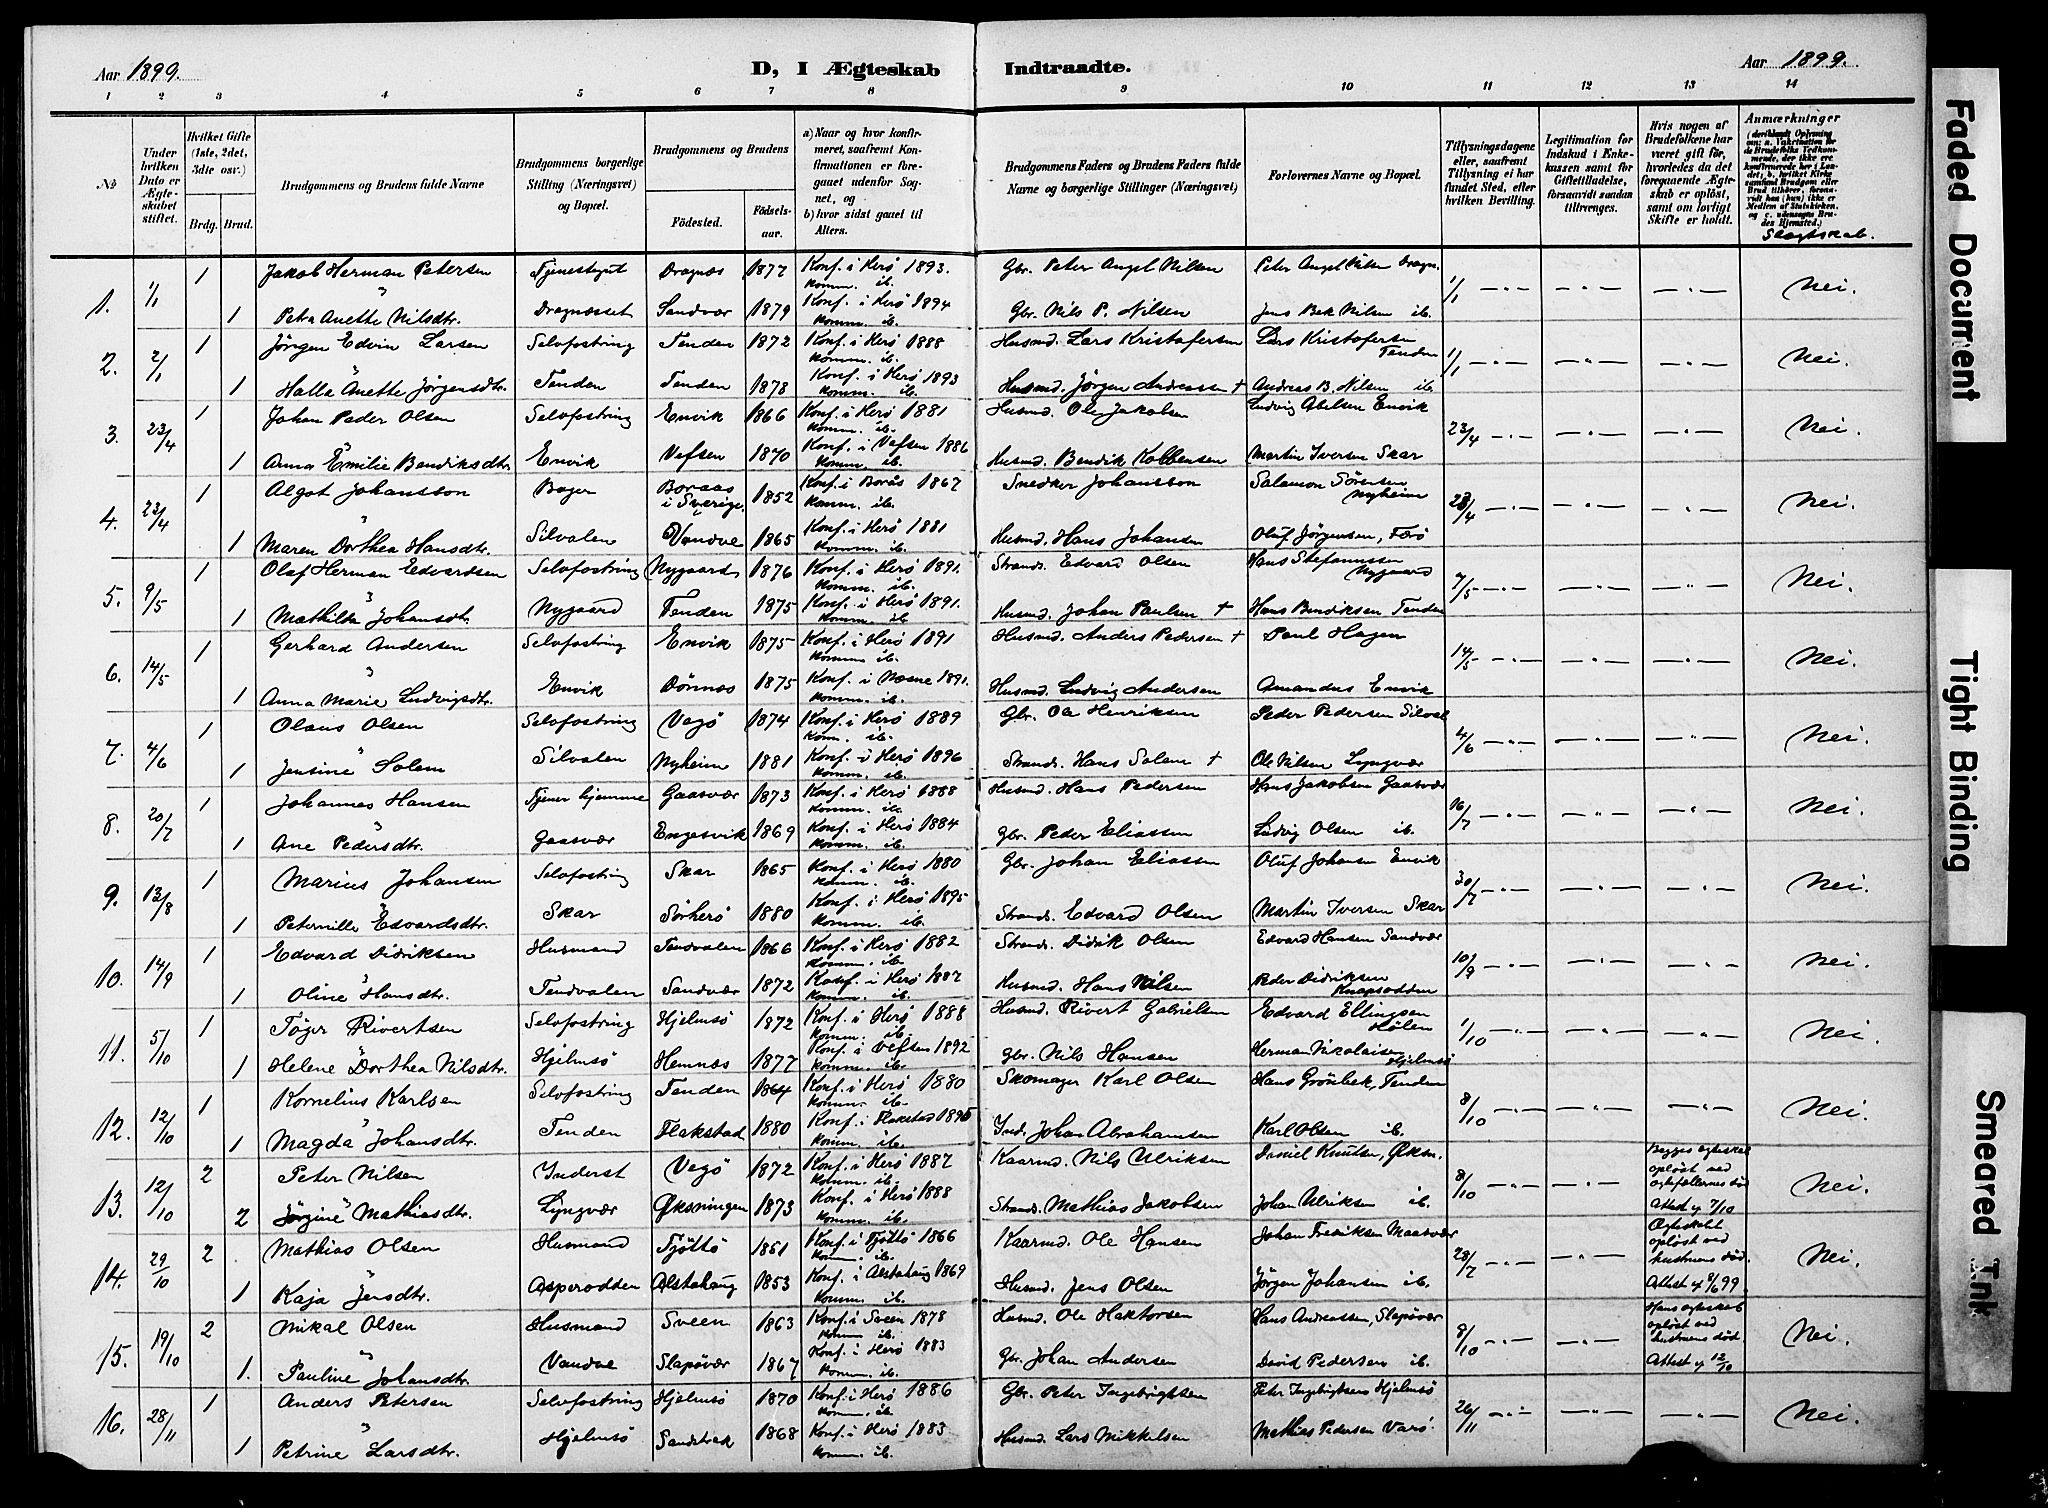 Aar 1899.
D, I Ægteskab Indtraadte.
Aar 1899.
1 2 3 4 5 6 7 8 9 10 11 12 13 14
No
Under hvilken Dato er Ægteskabet stiftet.
Hvilket Gifte (1ste, 2det, 3die osv.)
Brdg. Brud.
Brudgommens og Brudens fulde Navne
Brudgommens borgerlige Stilling (Næringsvei) og Bopæl.
Brudgommens og Brudens
Fødested.
Fødselsaar.
a) Naar og hvor konfirmeret, saafremt Konfirmationen er foregaaet udenfor Sognet, og
b) hvor sidst gaaet til Alters.
Brudgommens Faders og Brudens Faders fulde Navne og borgerlige Stillinger (Næringsvei)
Forlovernes Navne og Bopæl.
Tillysningsdagene eller, saafremt Tillysning ei har fundet Sted, efter hvilken Bevilling.
Legitimation for Indskud i Enkekassen samt for Giftetilladelse, forsaavidt saadan tiltrænges.
Hvis nogen af Brudefolkene har været gift før, hvorledes da det foregaaende Ægteskab er opløst, samt om lovligt Skifte er holdt.
Anmærkninger
Slægtskab.
1. 1/1 1 Jakob Herman Petersen Tjenestgut Dragnæs 1877 Konf. i Herø 1893. komm. ib. Gbr. Peter Angel Nilsen Peter Angel Nilsen Dragn. 1/1 Nei.
1 Petra Anette Nilsdtr. Dragnæsset Sandvær 1879 Konf. i Herø 1894 komm. ib. Gbr. Nils P. Nilsen Jens Bek Nilsen ib.
2. 2/1 1 Jørgen Edvin Larsen Selvfostring Tenden 1872 Konf. i Herø 1888 komm. ib. Husmd. Lars Kristofersen Lars Kristofersen Tenden 1/1 Nei.
1 Halla Anette Jørgensdtr. Tenden Tenden 1878 Konf. i Herø 1893 komm. ib. Husmd. Jørgen Andreassen + Andreas B. Nilsen ib.
3. 23/4 1 Johan Peder Olsen Selvfostring Envik 1866 Konf. i Herø 1881 Komm. ib. Husmd. Ole Jakobsen Ludvig Abelsen Envik 23/4 Nei.
1 Anna Emilie Bendiksdtr. Envik Vefsen 1870 Konf. i Vefsen 1886 komm. ib. Husmd. Bendik Kolbensen Martin Iversen Skar
4. 23/4 1 Algot Johansson Bager Boraas i Sverige. 1852 Konf. i Borås 1867 komm. ib. Snedker Johansson Salamon Sørensen Nyheim 23/4 Nei.
1 Maren Dorthea Hansdtr. Silvalen Vandve 1865 Konf. i Herø 1881 komm. ib. Husmd. Hans Johansen Oluf Jørgensen, Færø
5. 9/5 1 Olaf Herman Edvardsen Selvfostring Nygaard 1876 Konf. i Herø 1891. komm. ib. Strands. Edvard Olsen Hans Stefanussen Nygaard 7/5 Nei.
1 Mathilde Johansdtr. Nygaard Tenden 1875 Konf. i Herø 1891. komm. ib. Husmd. Johan Paulsen + Hans Bendiksen Tenden
6. 14/5 1 Gerhard Andersen Selvfostring Envik 1875 Konf. i Herø 1891 komm. ib. Husmd. Anders Pedersen + Paul Hagen 14/5 Nei.
1 Anna Marie Ludvigsdtr. Envik Dønnæs 1875 Konf. i Næsne 1891. komm. ib. Husmd. Ludvig Andersen Amandus Envik
7. 4/6 1 Olaus Olsen Selvfostring Vegø 1874 Konf. i Herø 1889 komm. ib. Gbr. Ole Henriksen Peder Pedersen Silval 4/6 Nei.
1 Jensine Solem Silvalen Nyheim 1881 Konf. i Herø 1896 komm. ib. Strands. Hans Solem + Ole Nilsen Lyngvær
8. 20/7 1 Johannes Hansen Tjener hjemme Gaasvær 1873 Konf. i Herø 1888 komm. ib. Husmd. Hans Pedersen Hans Jakobsen Gaasvær 16/7 Nei.
1 Ane Pedersdtr. Gaasvær Engesvik 1869 Konf. i Herø 1884 komm. ib. Gbr. Peder Eliassen Ludvig Olsen ib.
9. 13/8 1 Marius Johansen Selvfostring Skar 1865 Konf. i Herø 1880 komm. ib. Gbr. Johan Eliassen Oluf Johansen Envik 30/7 Nei.
1 Peternille Edvardsdtr. Skar Sørherø 1880 Konf. i Herø 1895 komm. ib. Strands. Edvard Olsen Martin Iversen Skar
10. 14/9 1 Edvard Didriksen Husmand Tendvalen 1866 Konf. i Herø 1882 komm. ib. Strands. Didrik Olsen Edvard Hansen Sandvær 10/9 Nei.
1 Oline Hansdtr. Tendvalen Sandvær 1872 Konf. i Herø 1887 komm. ib. Husmd. Hans Nilsen Peder Didriksen Knapsodden
11. 5/10 1 Tøger Rivertsen Selvfostring Hjelmsø 1872 Konf. i Herø 1888 komm. ib. Husmd. Rivert Gabrielsen Edvard Ellingsen Hølen 1/10 Nei.
1 Helene Dorthea Nilsdtr. Hjelmsø Hemnæs 1877 Konf. i Vefsen 1892 komm. ib. Gbr. Nils Hansen Herman Nikolaisen Hjelmsø
12. 12/10 1 Kornelius Karlsen Selvfostring Tenden 1864 Konf. i Herø 1880 komm. ib. Skomager Karl Olsen Hans Grønbek, Tenden 8/10 Nei.
1 Magda Johansdtr. Tenden Flakstad 1880 Konf. i Flakstad 1895 komm. ib. Ind. Johan Abrahamsen Karl Olsen ib.
13. 12/10 2 Peter Nilsen Inderst Vegø 1872 Konf. i Herø 1887 komm. ib. Kaarmd. Nils Ulriksen Daniel Knutsen, Øksn. 8/10 Begges egteskab opløst ved egtefællernes død Attest af 7/10 Nei.
2 Jørgine Mathiasdtr. Lyngvær Øksningen 1873 Konf. i Herø 1888 komm. ib. Strands. Mathias Jakobsen Johan Ulriksen ib.
14. 29/10 2 Mathias Olsen Husmand Tjøttø 1851 Konf. i Tjøttø 1866 komm. ib. Kaarmd. Ole Hansen Johan Fredriksen Maasvær 23/7 Egteskabet opløst ved hustruens død. Attest af 8/6 99 Nei.
1 Kaja Jensdtr. Asperodden Alstahaug 1853 Konf. i Alstahaug 1869 komm. ib. Husmd. Jens Olsen Jørgen Johansen ib.
15. 19/10 2 Mikal Olsen Husmand Sveen 1863 Konf. i Sveen 1878 komm. ib. Husmd. Ole Haktorsen Hans Andreassen, Slapøvær 8/10 Hans egteskab opløst ved hustruens død Attest af 12/10 Nei.
1. Pauline Johansdtr. Vandve Slapøvær 1867 Konf. i Herø 1883 komm. ib. Gbr. Johan Andersen David Pedersen ib.
16. 28/11 1 Anders Petersen Selvfostring Hjelmsø 1870 Konf. i Herø 1886 komm. ib. Gbr. Peter Ingebrigtsen Peter Ingebrigtsen Hjelmsø 26/11 Nei.
1 Petrine Larsdtr. Hjelmsø Sandstrak 1868 Konf. i Herø 1883 komm. ib. Husmd. Lars Mikkelsen Mathias Pedersen Varø
Faded Document
Tight Binding
Smeared Ink